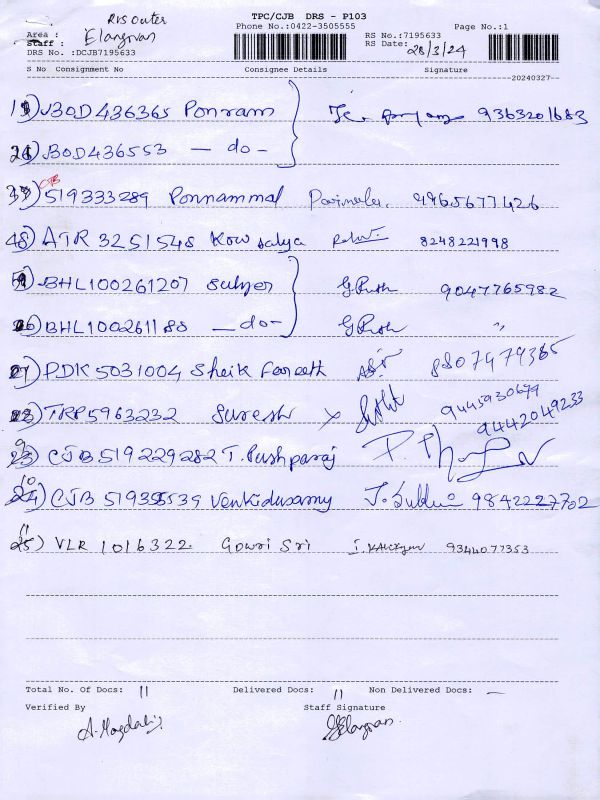 TPC/CJB DRS - P103
RVS Outer
Phone No.:0422-3505555 Page No.:1
Area : Elangovan
Staff :
RS No.:7195633
DRS No. :DCJB7195633 RS Date: 28/3/24
S No Consignment No Consignee Details Signature
20240327
1) JBOD436365 Ponram 9363201683
2) BOD436553 - do -
3) CJB 519333289 Ponnammal Parimala. 9965677426
4) ATR 3251548 Kowsalya 8248221998
5) BHL100261207 9047765982
6) BHL100261180 - do - "
7) PDK5031004 Sheik Fareeth 8807479365
8) TRP5963232 Suresh 9445930699
9442049233
9) CJB 519229282 T. Pushparaj
10) CJB 519355539 Venkidusamy 9842227702
11) VLR 1016322 Gowri Sri 9344077353
Total No. Of Docs: 11 Delivered Docs: 11 Non Delivered Docs: —
Verified By Staff Signature
A. Magdali Elangovan.